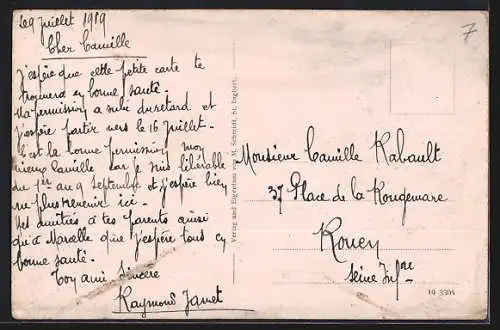 Le 9 juillet 1919
Cher Camille
J'espère que cette petite carte te
trouvera en bonne santé.
Ma permission a subi du retard et
j'espère partir vers le 16 juillet.
C'est la bonne permission mon
vieux Camille car je suis libérable
du 1er au 9 Septembre et j'espère bien
ne plus revenir ici.
Mes amitiés à tes parents ainsi
qu'à Marcelle que j'espère tous en
bonne santé.
Ton ami sincère
Raymond Janet
Verlag und Eigentum von M. Schmitt, St. Ingbert.
7
Monsieur Camille Rabault
37 Place de la Rougemare
Rouen
Seine Infre
19 3305